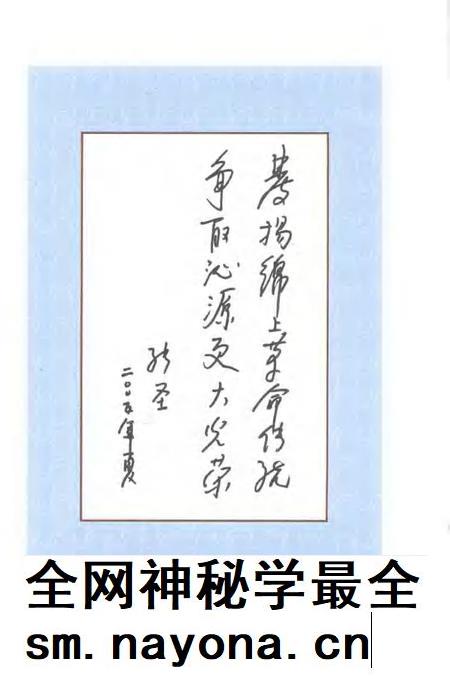 發揚綿上革命传統
争取沁源更大光荣
圣
二00五年夏
全网神秘学最全
sm.nayona.cn